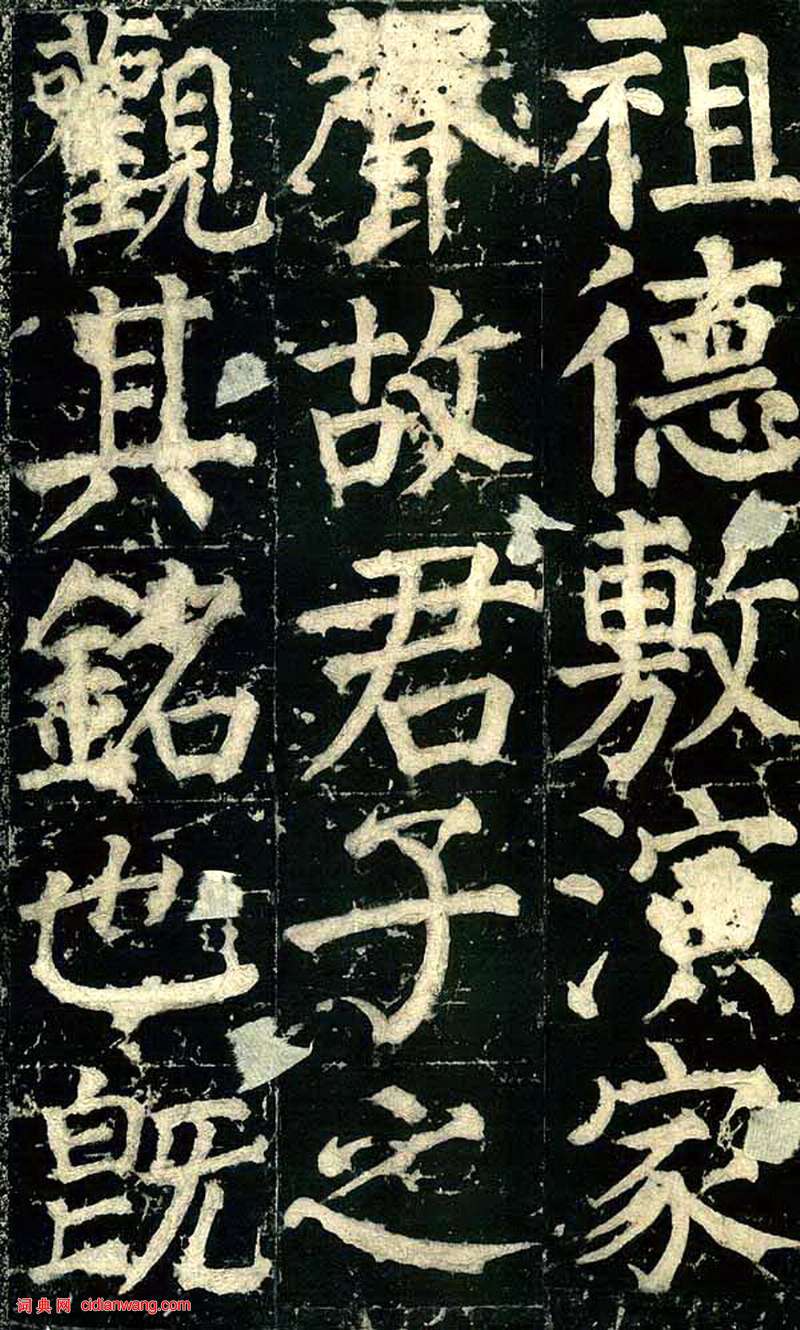 祖德敷演家
聲故君子之
觀其銘也旣
词典网 cidianwang.com